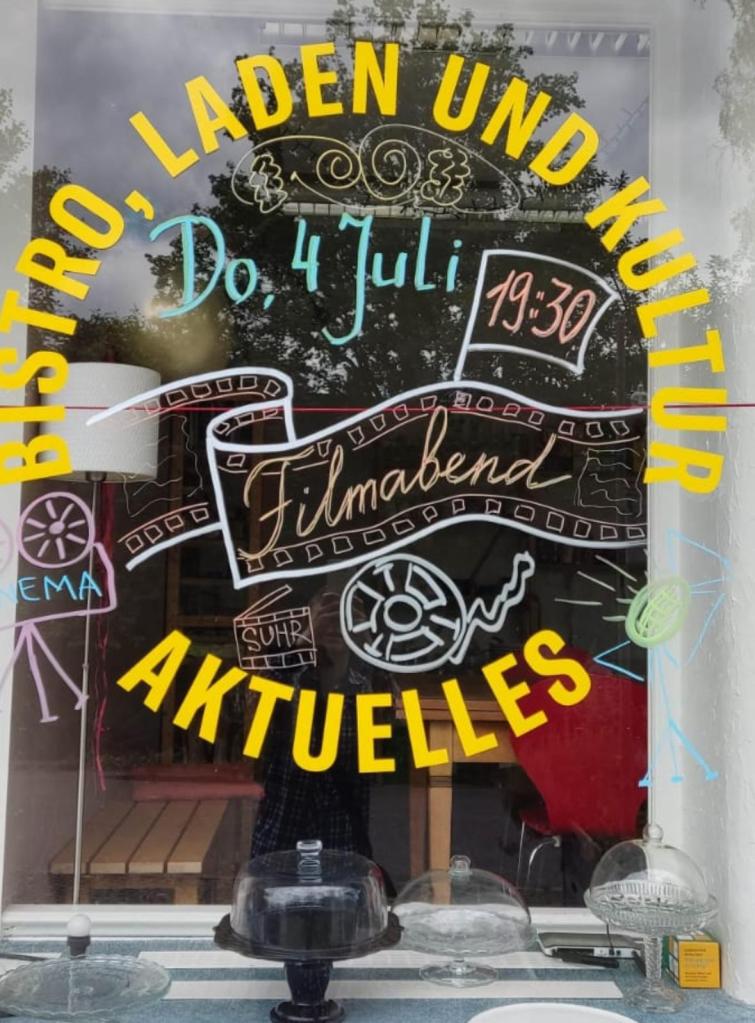 BISTRO, LADEN UND KULTUR
Do, 4 Juli
19:30
Filmabend
NEMA
SUHR
AKTUELLES